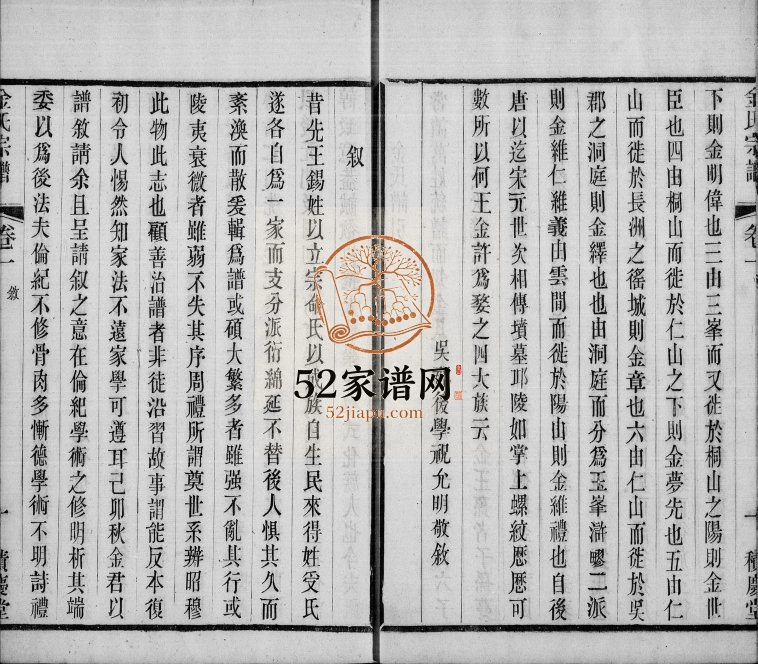 金氏宗譜
卷一
積慶堂
下則金明偉也三由三峯而又徙於桐山之陽則金世
臣也四由桐山而徙於仁山之下則金夢先也五由仁
山而徙於長洲之滛城則金章也六由仁山而徙於吳
郡之洞庭則金繹也也由洞庭而分爲玉峯滸㙁二派
則金維仁維義由雲間而徙於陽山則金維禮也自後
唐以迄宋元世次相傳墳墓邱陵如掌上螺紋歷歷可
數所以何王金許爲婺之四大族云
吳後學祝允明敬敘
叙
昔先王錫姓以立宗命氏以族自生民來得姓受氏
遂各自爲一家而支分派衍綿延不替後人懼其久而
紊渙而散爰輯爲譜或碩大繁多者雖强不亂其行或
陵夷衰微者雖弱不失其序周禮所謂奠世系辨昭穆
此物此志也顧善治譜者非徒沿習故事謂能反本復
初令人惕然知家法不遠家學可遵耳己卯秋金君以
譜敘請余且呈請叙之意在倫紀學術之修明析其端
委以爲後法夫倫紀不修骨肉多慚德學術不明詩禮
金氏宗譜
卷一
敘
一
積慶堂
52家谱网
52jiapu.com